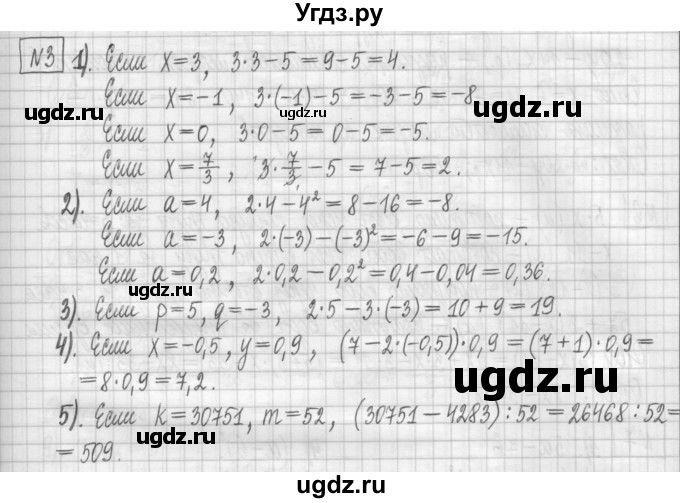 Угдз.ру
№3 1). Если x=3, 3·3−5=9−5=4.
Если x=−1, 3·(−1)−5=−3−5=−8
ugdz.ru ugdz.ru
Если x=0, 3·0−5=0−5=−5.
Если x=7/3, 3·7/3−5=7−5=2.
ugdz.ru
2). Если a=4, 2·4−4²=8−16=−8.
Если a=−3, 2·(−3)−(−3)²=−6−9=−15.
Если a=0,2, 2·0,2−0,2²=0,4−0,04=0,36.
ugdz.ru
3). Если p=5, q=−3, 2·5−3·(−3)=10+9=19.
4). Если x=−0,5, y=0,9, (7−2·(−0,5))·0,9=(7+1)·0,9=
=8·0,9=7,2.
ugdz.ru
5). Если k=30751, m=52, (30751−4283):52=26468:52=
=509.
ugdz.ru